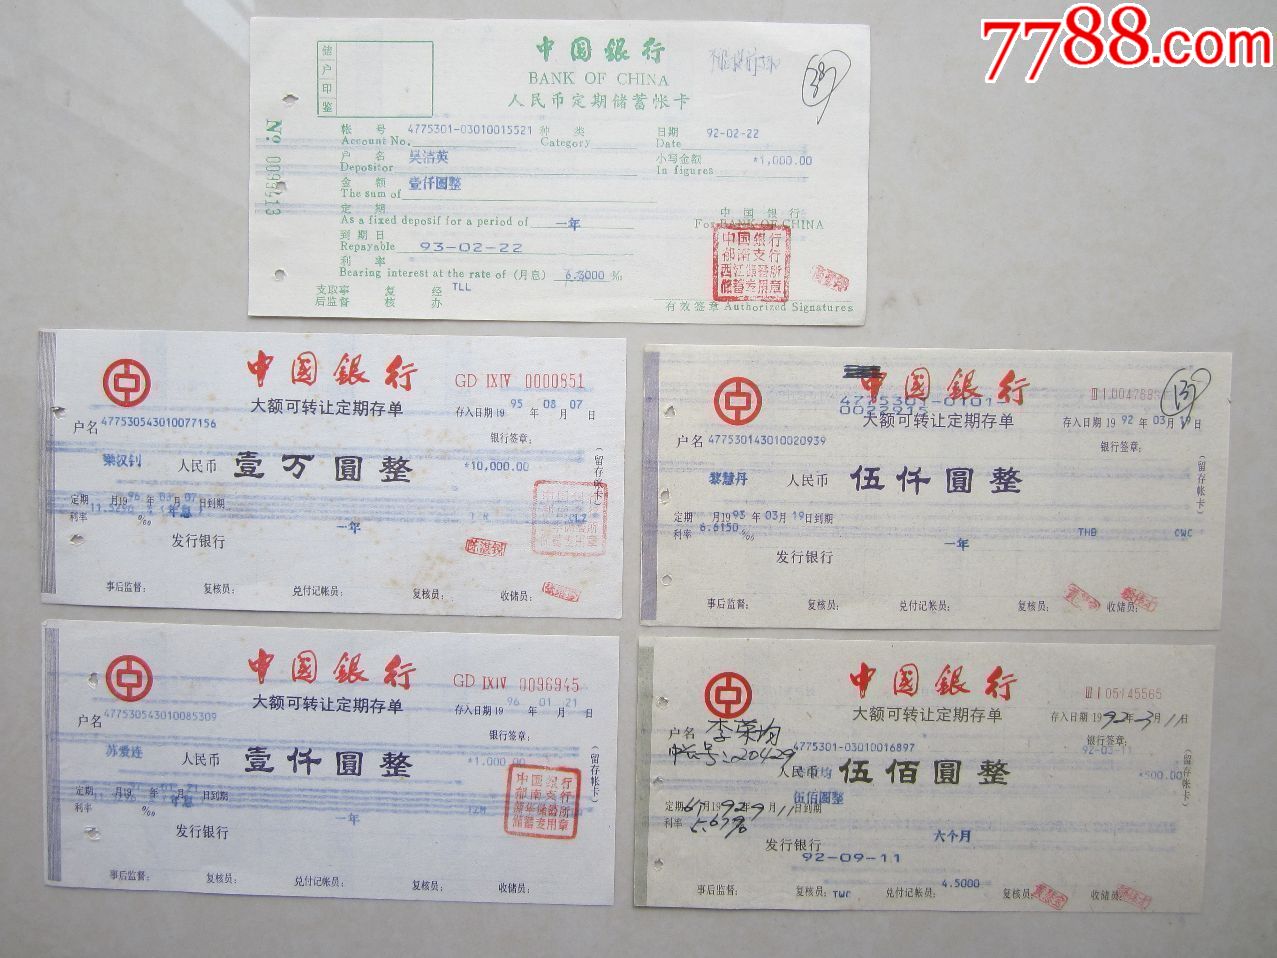 7788.com
储户印鉴
中国銀行
BANK OF CHINA
人民币定期储蓄帐卡
No. 0099413
帐 号 4775301-03010015521 种 类 日期 92-02-22
Account No. Category Date
户 名 吴洁英 小写金额 *1,000.00
Depositor In figures
金 额 壹仟圆整
The sum of
定 期 中 国 银 行
As a fixed deposif for a period of 一年 For BANK OF CHINA
到 期 日
Repayable 93-02-22
利 率
Bearing interest at the rate of (月息) 6.3000 ‰
支取事 复 经 TLL
后监督 核 办
有效签章 Authorized Signatures
中国银行
郁南支行
西江储蓄所
储蓄专用章
中国銀行
GD IXIV 0000851
大额可转让定期存单
存入日期 19 95 年 08 月 07 日
户名 477530543010077156
银行签章:
梁汉钊 人民币 壹万圓整 *10,000.00
(留存帐卡)
定期 月19 96 年 月 07 日到期
利率 ‰ 年息 一年
发行银行
事后监督: 复核员: 兑付记帐员: 复核员: 收储员:
中国銀行
4775301-0101-
0022915
大额可转让定期存单
存入日期 19 92 年 03 月 日
户名 477530143010020939
银行签章:
黎慧丹 人民币 伍仟圓整
(留存帐卡)
定期 月19 93 年 03 月 19 日到期
利率 6.6150 ‰ THB CWC
一年
发行银行
事后监督: 复核员: 兑付记帐员: 复核员: 收储员:
中国銀行
GD IXIV 0096945
大额可转让定期存单
存入日期 19 96 年 01 月 21 日
户名 477530543010085309
银行签章:
苏爱连 人民币 壹仟圓整 *1,000.00
(留存帐卡)
定期 月19 年 月 21 日到期
利率 ‰ 年息 一年
发行银行
中国银行
郁南支行
储蓄专用章
事后监督: 复核员: 兑付记帐员: 复核员: 收储员:
中国銀行
大额可转让定期存单
存入日期 1992年3月11日
户名 李荣均
银行签章:
4775301-03010016897 92-03-11
人民币 伍佰圓整 *500.00
伍佰圆整
(留存帐卡)
定期 6 月1992年9月11日到期
利率
六个月
发行银行
92-09-11
4.5000
事后监督: 复核员: TWC 兑付记帐员: 复核员: 收储员: